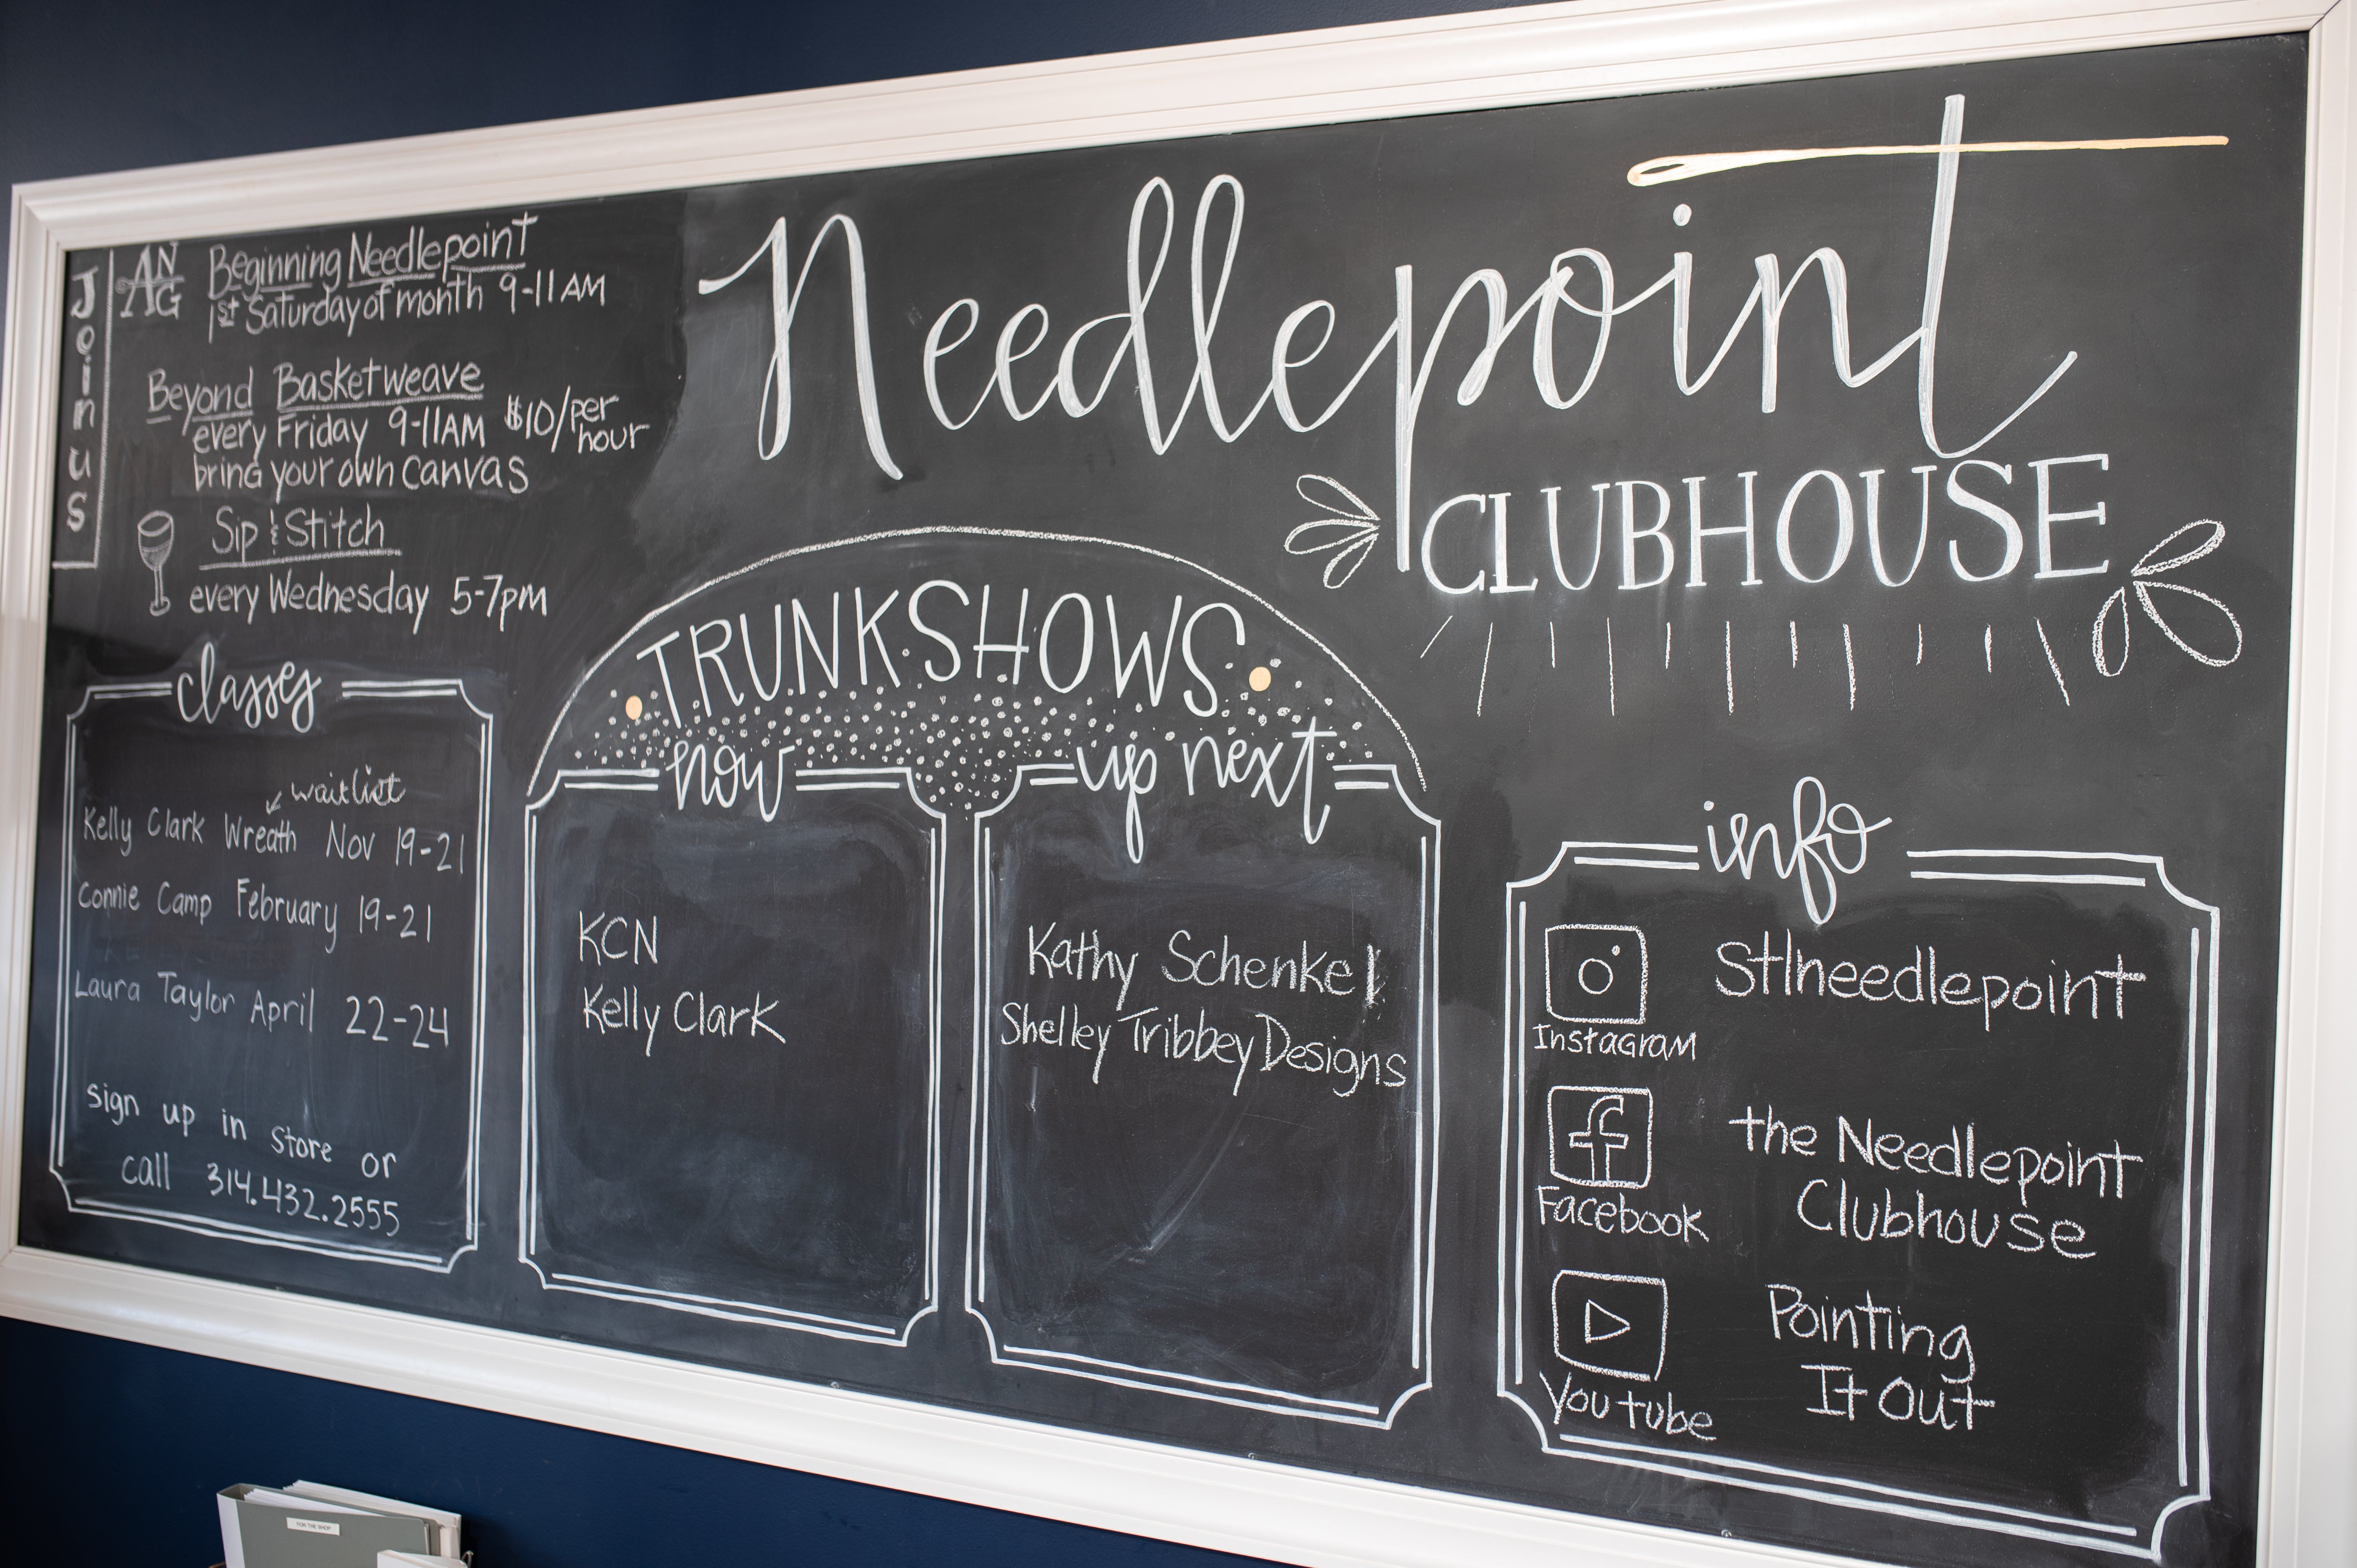 Needlepoint
CLUBHOUSE
Join us
ANG
Beginning Needlepoint
1st Saturday of month 9-11AM
Beyond Basketweave
every Friday 9-11AM $10/per hour
bring your own canvas
Sip & Stitch
every Wednesday 5-7pm
classes
waitlist
Kelly Clark Wreath Nov 19-21
Connie Camp February 19-21
Laura Taylor April 22-24
sign up in store or
call 314.432.2555
TRUNKSHOWS
now
KCN
Kelly Clark
up next
Kathy Schenkel
Shelley Tribbey Designs
info
Instagram
Stlneedlepoint
Facebook
the Needlepoint
Clubhouse
Youtube
Pointing
It Out
FOR THE SHOP